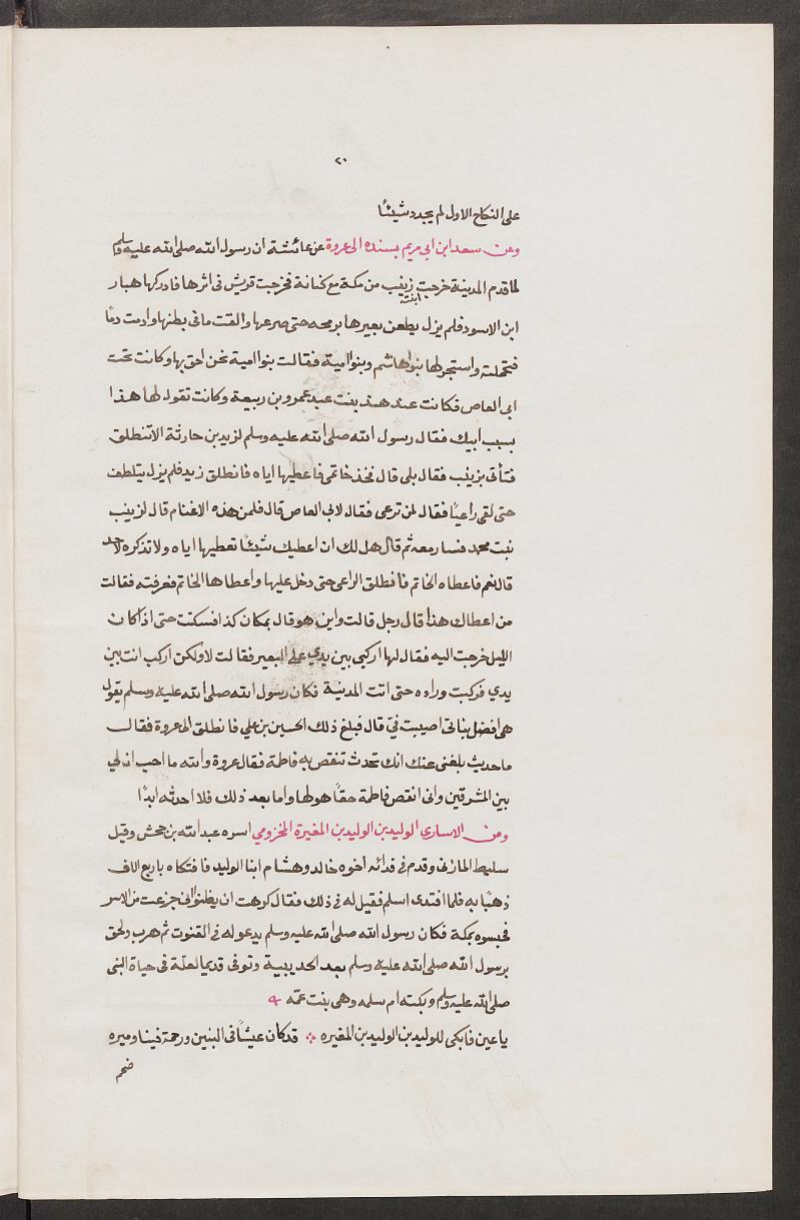 ٢٠
على النكاح الاول لم يجدد شيئًا
وعن سعد ابن ابي مريم بسنده الى عروة عن عائشة ان رسول الله صلى الله عليه وسلم
لما قدم المدينة خرجت زينب ابنته من مكة مع كنانة فخرجت قريش في اثرها فادركها هبار
ابن الاسود فلم يزل يطعن بعيرها برمحه حتى صرعها والقت ما في بطنها وادمت دمًا
فتحملت واستجر لها بنوا هاشم وبنوا امية فقالت بنوا امية نحن احق بها وكانت تحت
ابى العاص فكانت عند هند بنت عبد عمرو بن ربيعة وكانت تقول لها هذا
بسبب ابيك فقال رسول الله صلى الله عليه وسلم لزيد بن حارثة الا تنطلق
فتأتى بزينب فقال بلى قال فخذ خاتمى فاعطيها اياه فانطلق زيد فلم يزل يتلطف
حتى لقى راعيًا فقال لمن ترعى فقال لابى العاص قال فلمن هذه الاغنام قال لزينب
بنت محمد فسار معه ثم قال هل لك ان اعطيك شيئًا تعطيها اياه ولا تذكره لاحد
قال نعم فاعطاه الخاتم فانطلق الراعى حتى دخل عليها واعطاها الخاتم فعرفته فقالت
من اعطاك هذا قال رجل قالت واين هو قال بمكان كذا فسكتت حتى اذا كان
الليل خرجت اليه فقال لها اركبى بين يدي على البعير فقالت لا ولكن اركب انت بين
يدي فركبت وراءه حتى اتت المدينة فكان رسول الله صلى الله عليه وسلم يقول
هى افضل بناتى اصيبت فيّ قال فبلغ ذلك الحسين بن علي فانطلق الى عروة فقال
ما حديث بلغنى عنك انك تحدث تنقص به فاطمة فقال عروة والله ما احب ان لي
بين المشرقين وانى انقص فاطمة حقًا هو لها واما بعد ذلك فلا احدثه ابدًا
ومن الاسارى الوليد بن الوليد بن المغيرة المخزومي اسره عبد الله بن جحش وقيل
سليط المازنى وقدم في فدائه اخوه خالد وهشام ابنا الوليد فافتكاه باربع الاف
ذهبا به فلما افتدى اسلم فقيل له في ذلك فقال كرهت ان يظنوا انى جزعت من الاسر
فحبسوه بمكة فكان رسول الله صلى الله عليه وسلم يدعو له في القنوت ثم هرب ولحق
برسول الله صلى الله عليه وسلم بعد الحديبية وتوفى قديما لعلة في حياة النبى
صلى الله عليه وسلم وبكته ام سلمه وهى بنت عمّه
ياعين فابكى للوليد بن الوليد بن المغيره قد كان غيثًا في السنين ورحمة فينا وميره
ضخم